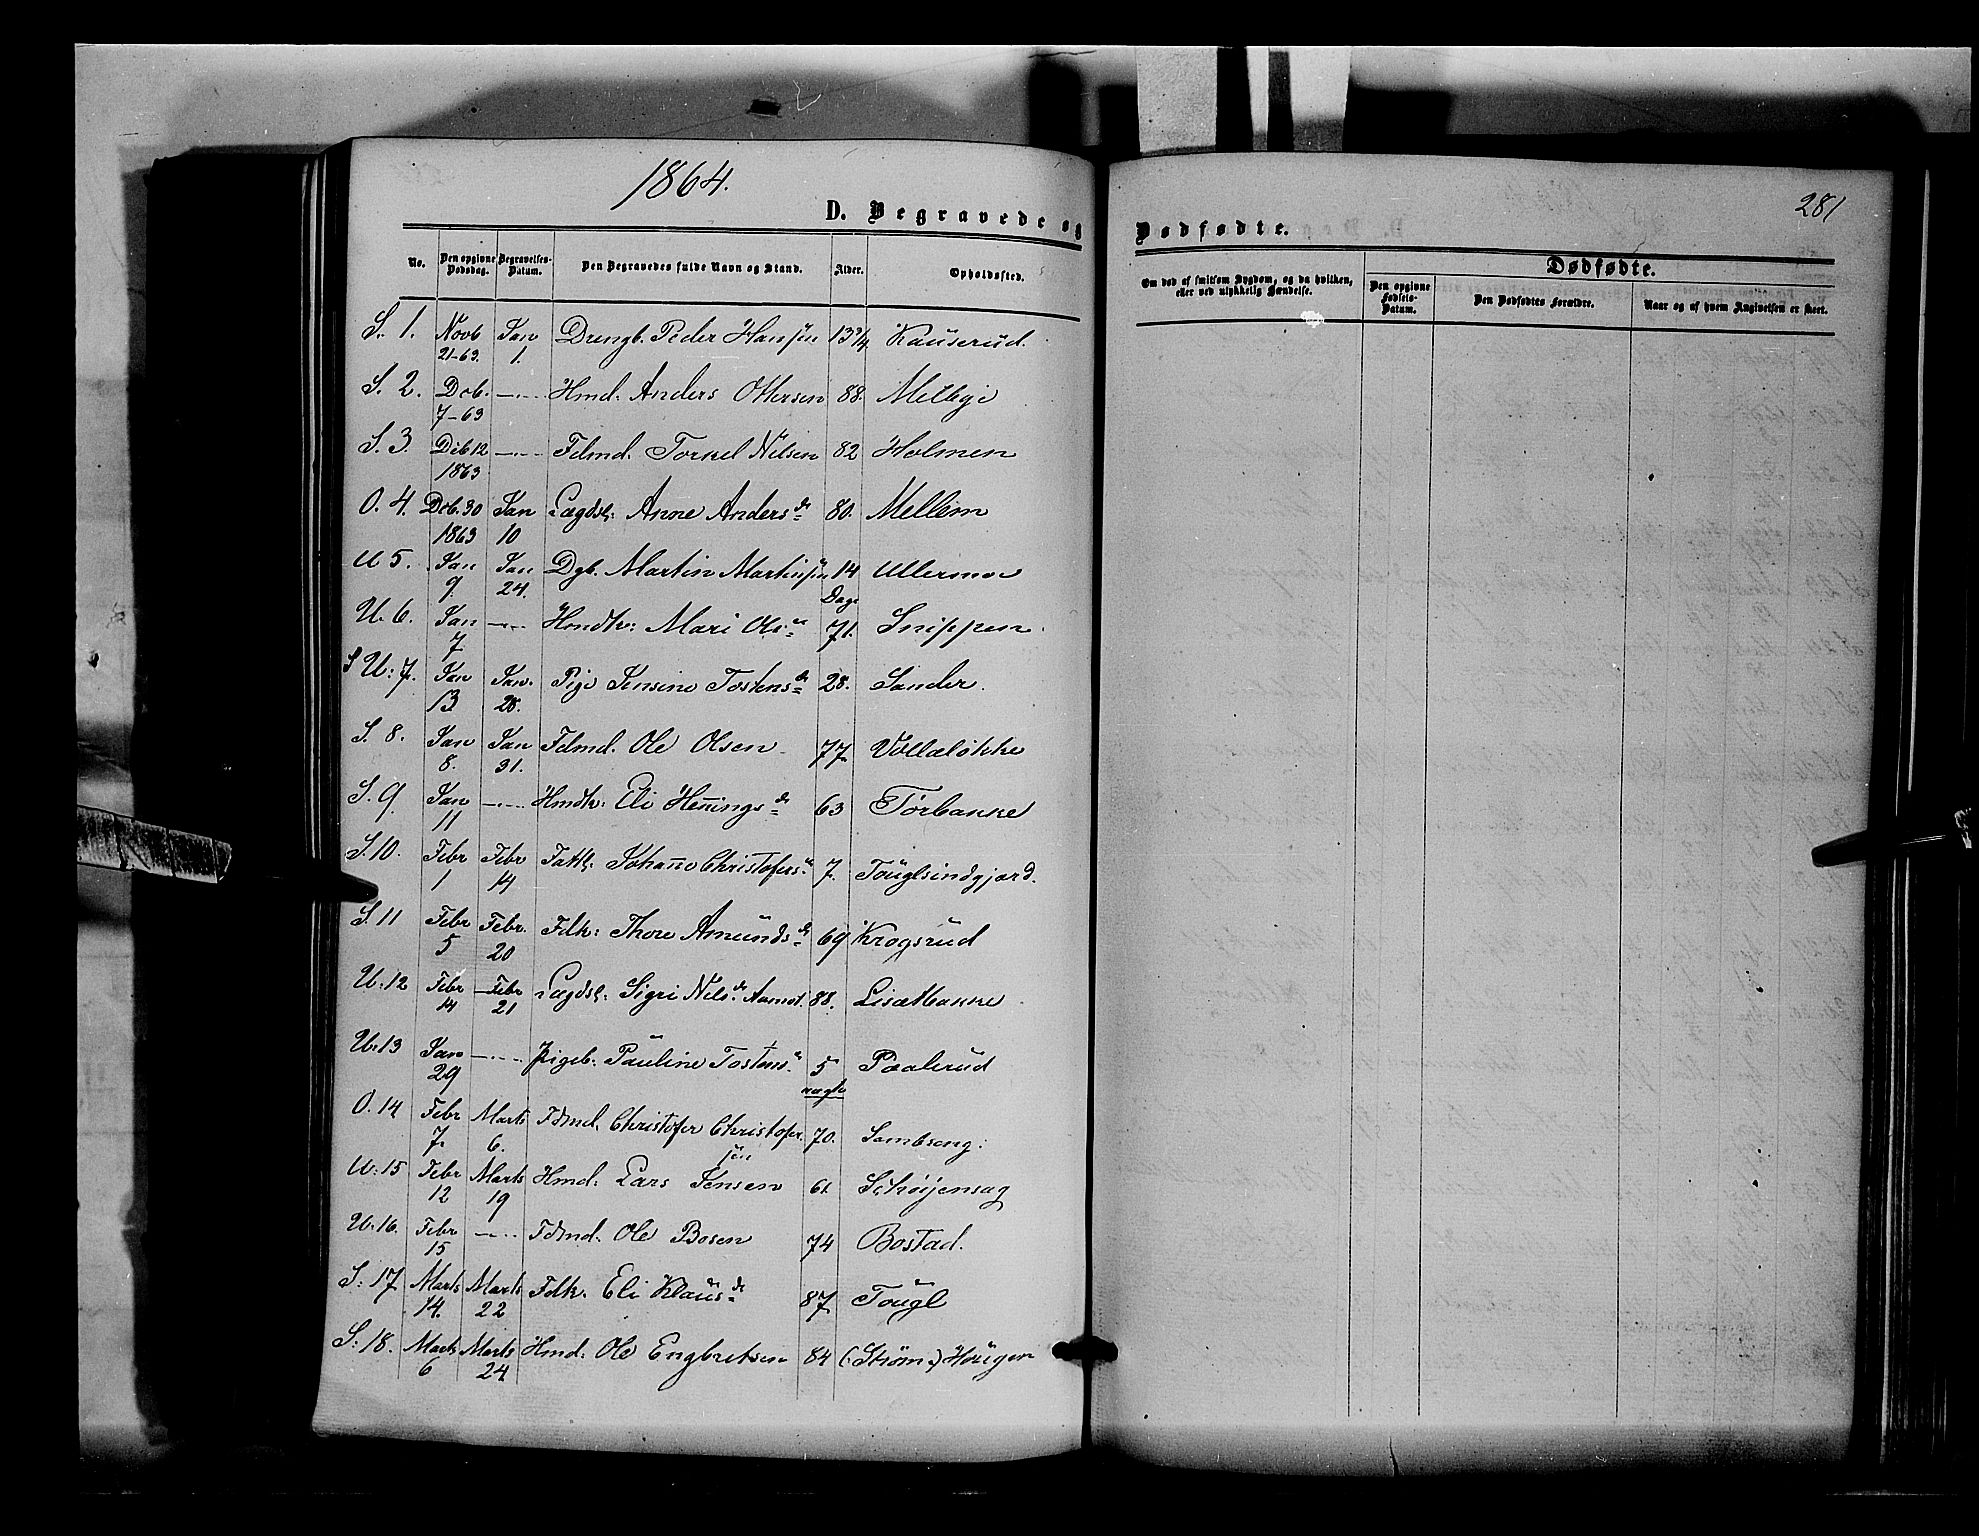 1864.
281
D. Begravede og
Dødfødte.
No. Den opgivne Dødsdag. Begravelses-Datum. Den Begravedes fulde Navn og Stand. Alder. Opholdssted.
Om død af smitsom Sygdom, og da hvilken, eller ved ulykkelig Hændelse.
Dødfødte.
Den opgivne Fødsels-Datum. Den Dødfødtes Forældre. Naar og af hvem Angivelsen er skeet.
S. 1. Novb Jan Drengb. Peder Hansen 13 3/4 Kauserud.
21-63. 1.
S. 2. Dcb. —"— Hmd. Anders Ottersen 88. Melbye
7-63
S. 3. Dcb 12 —"— Fdmd. Torkel Nilsen 82 Holmen
1863
O. 4. Dcb. 30 Jan Lægdsl: Anne Andersdr 80. Mellem
1863 10
U 5. Jan Jan Dgb. Martin Martinsen 14 Ullermoe
9. 24. Dage
U. 6. Jan —"— Hmdk: Mari Ols 71. Snippen.
7
S U: 7. Jan Jan. Pige Jensine Tostensdr 28. Sander.
13 28.
S. 8. Jan Jan Fdmd. Ole Olsen 77 Vollaløkke
8. 31.
S. 9. Jan —"— Hmdk: Eli Henningsdr 63 Torbakke
11
S. 10. Febr Febr Johanne Christofers 7. Touglsindgjærd.
1 14
S. 11 Febr Febr. Fdk: Thore Amundsdr 69 Krogsrud
5 20
U: 12 Febr Febr Lægdsl: Sigri Nilsdr 88. Lisætbakke
14 21
U: 13 Jan —"— Pigeb: Pauline Tostens 5 Paalerud
29
O. 14 Febr Marts Fdmd. Christofer Christofer 70. Sembseng.
7. 6. sen
U: 15 Febr Marts Hmd: Lars Jensen 61 Schøijensag
12 19
U: 16. Febr —"— Fdmd. Ole Bosen 74 Bostad.
15
S: 17 Marts Marts Fdk. Eli Klausdr 87 Tougl
14. 22
S: 18. Marts Marts Hmd: Ole Engbretsen 84 (Strøm) Hougen
6 24